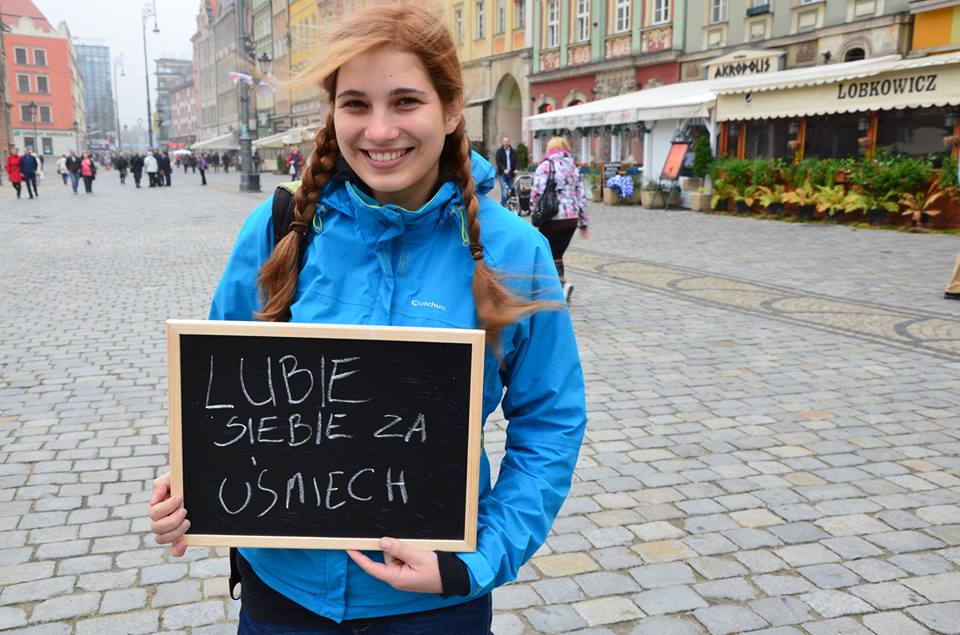 AKROPOLIS
LOBKOWICZ
Quechua
LUBIE
SIEBIE ZA
UŚMIECH